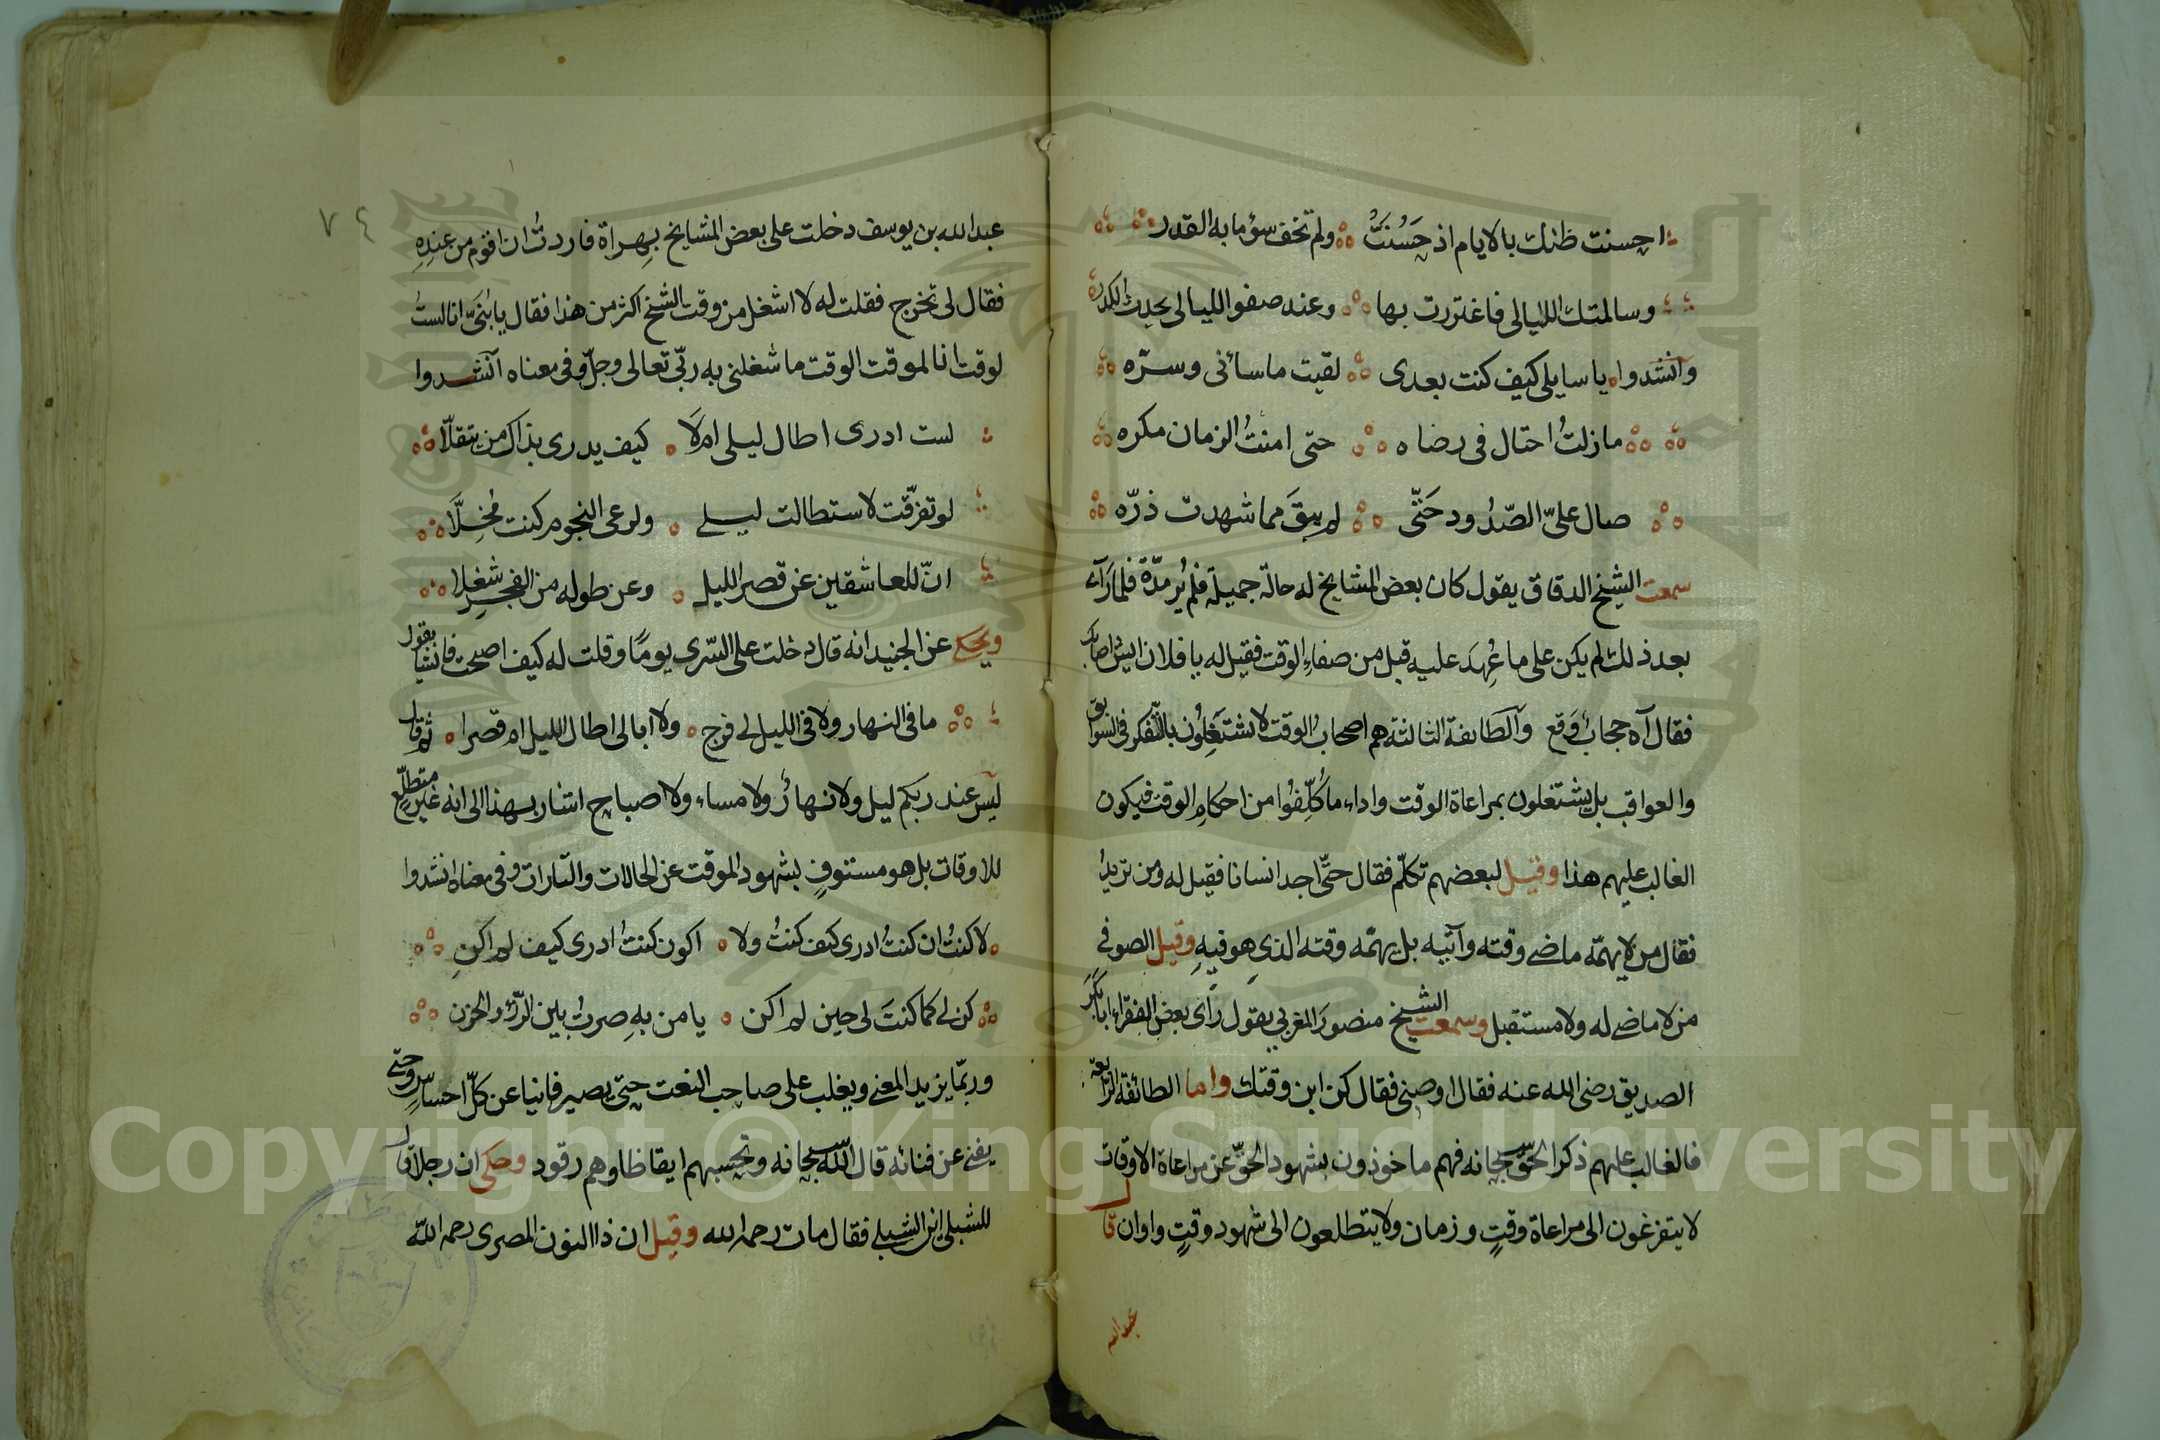 احسنت ظنك بالايام اذ حَسُنَتْ ولم تخف سؤ ما به القدر
وسالمتك الليالى فاغتررت بها وعند صفو الليالى يحدث الكدر
وانشدوا يا سايلى كيف كنت بعدى لقيت ما سائنى وسرّه
مازلتُ احتال فى رضاه حتى امنتُ الزمان مكره
صال علىّ الصّدُود حَتّى لم يبقَ مما شهدت ذرّه
سمعت الشيخ الدقاق يقول كان بعض المشايخ له حالة جميلة فلم يُر مدّة فلما رَآه
بعد ذلك لم يكن على ما عُهِدَ عليه قبل من صفاءِ الوقت فقيل له يا فلان ايش اصابك
فقال آه حجابٌ وَقع وآلطائفة الثالثة هم اصحاب الوقت لا يشتَغِلُون بالتّفكر فى السوابق
والعواقب بل يشتغلون بمراعاة الوقت واداء ما كُلِّفُوا من احكامِ الوقت فيكون
الغالب عليهم هذا وقيل لبعضهم تكلّم فقال حتّى اجد انسانا فقيل له ومن تريدُ
فقال من لا يهمّه ماضى وقته وآتيه بل يهمّه وقته الذى هو فيهِ وقيل الصوفى
من لا ماضى له ولا مستقبل وسمعت الشيخ منصورَ المغربى يقول رَأى بعض الفقراء ابابكرَ
الصديق رضى الله عنه فقال اوصنى فقال كن ابن وقتك واما الطائفة الرّابعة
فالغالب عليهم ذكر الحقّ سبحانه فهم ماخوذون بشهود الحقّ عن مراعاة الاوقات
لا يتفرغون الى مراعاة وقتٍ وزمان ولا يتطلعون الى شهود وقتٍ واوان قال
عبد الله
٧٤
عبد الله بن يوسف دخلت على بعض المشايخ بِهراة فاردتُ ان اقوم من عندِهِ
فقال لى تخرج فقلت له لا اشغل من وقت الشيخ اكثر من هذا فقال يا بُنَىّ انا لستُ
لوقت انا لموقت الوقت ما شغلنى به ربّى تعالى وجلّ وفى معناه آنشدوا
لست ادرى اطال ليلى ام لَا كيف يدرى بذاك من يتقلّا
لو تفرّقت لاستطالت ليلى ولرعى النجوم كنت مُخِلَّا
انّ للعاشقين عن قصر الليلِ وعن طوله من الهجر شغلا
ويحكى عن الجنيد انه قال دخلت على السّرى يومًا وقلت له كيف اصبحت فانشأ يقول
ما فى النهار ولا فى الليل لى فرج ولا ابالى اطال الليل ام قصرا ثم قال
ليس عند ربكم ليل ولا نهارٌ ولا مساء ولا صباح اشار بهذا الى انه غير متطلّع
للاوقات بل هو مستوفٍ بشهود الموقت عن الحالات والتارات وفى معناه انشدوا
لا كنتُ ان كنتُ ادرى كيف كنتُ ولا اكون كنتُ ادرى كيف لم اكنِ
كن لى كما كنتَ لى حين لم اكن يا من بهِ صرتُ بين الرُّزْءِ والحزن
وربّما يزيد المعنى ويغلب على صاحب النعت حتى يصير فانيا عن كلّ احساسٍ وحتى
يفنى عن فنائه قال اللّه سبحانه وتحسبهم ايقاظا وهم رقود وحكى ان رجلا قال
للشبلى اين الشبلى فقال مات رحمه الله وقيل ان ذا النون المصرى رحمه اللّه
Copyright © King Saud University